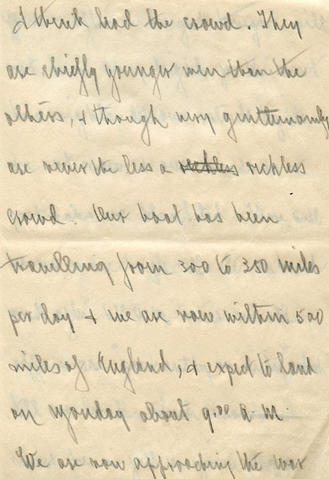 I think lead the crowd. They
are chiefly younger men than the
others, & though very gentlemanly
are never the less a reckless rickless
crowd. Our boat has been
travelling from 300 to 380 miles
per day & we are now within 500
miles of England, & expect to land
on Monday about 9.00 A.M.
We are now approaching the war